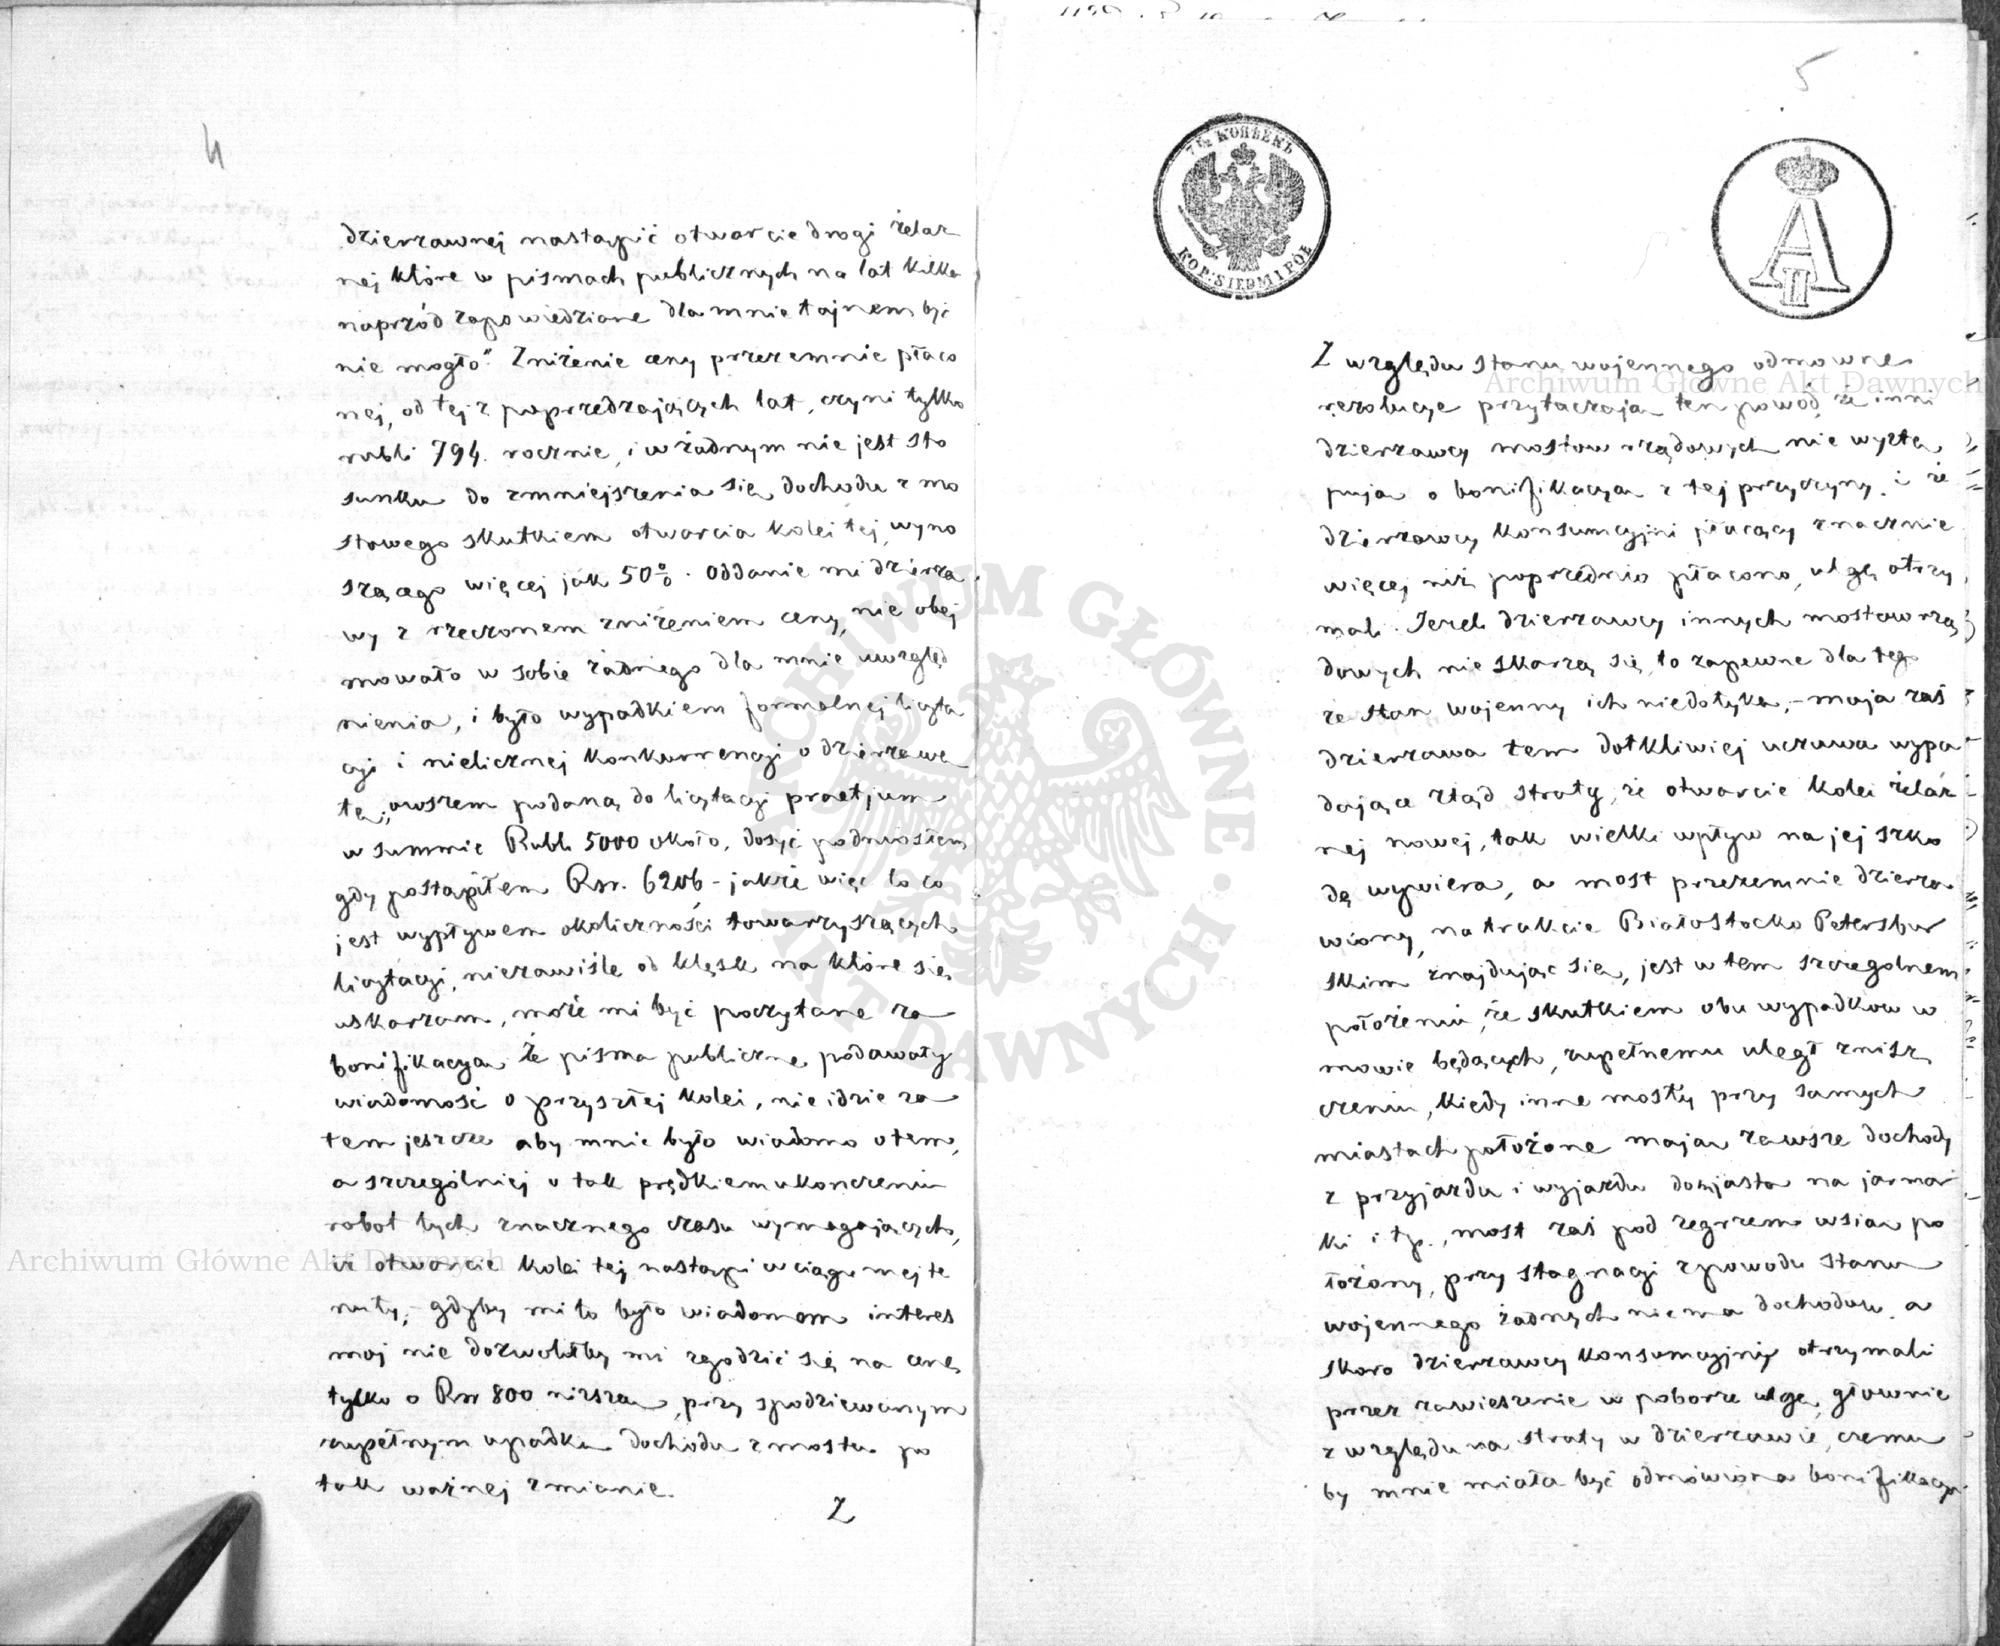 4
dzierzawnej nastąpić otwarcie drogi żelaz
nej które w pismach publicznych na lat kilka
naprzód zapowiedziane dla mnie tajnem być
nie mogło" Zniżenie ceny przezemnie płaco
nej, od tej z poprzedzających lat, czyni tylko
rubli 794. rocznie, i w żadnym nie jest sto
sunku do zmniejszenia się dochodu z mo
stowego skutkiem otwarcia kolei tej, wyno
szącego więcej jak 50%. Oddanie mi dzierza
wy z rzeczonem zniżeniem ceny, nie obej
mowało w sobie żadnego dla mnie uwzględ
nienia, i było wypadkiem formalnej licyta
cji i nielicznej konkurrencji o dzierzawę
tę; owszem podaną do licytacji praetjum
w summie Rubli 5000 około, dosyć podniosłem
gdy postąpiłem Rsr. 6206 - jakże więc to co
jest wypływem okoliczności towarzyszących
licytacji, niezawiśle od klęsk na które się
uskarzam, może mi być poczytane za
bonifikacyą Że pisma publiczne podawały
wiadomość o przyszłej kolei, nie idzie za
tem jeszcze aby mnie było wiadomo o tem,
a szczególniej o tak prędkiem ukonczeniu
robot tych znacznego czasu wymagających,
iż otwarcie kolei tej nastąpi w ciągu mej te
nuty; - gdyby mi to było wiadomem interes
moj nie dozwoliłby mi zgodzić się na cenę
tylko o Rsr 800 niższą, przy spodziewanym
zupełnym upadku dochodu z mostu po
tak ważnej zmianie.
Z
5
7½ КОПѢЕКЪ
KOP: SIEDM I PÓŁ
A II
Z względu stanu wojennego odmowne
rezolucye przytaczają ten powód, że inni
dzierzawcy mostow rządowych nie wystę
pują o bonifikacyą z tej przyczyny, i że
dzierzawcy konsumcyjni płacący znacznie
więcej niż poprzednio płacono, ulgę otrzy
mali. Jeżeli dzierzawcy innych mostow rzą
dowych nie skarzą się, to zapewne dla tego
że stan wojenny ich niedotyka, - moja zaś
dzierzawa tem dotkliwiej uczuwa wypa
dające ztąd straty, że otwarcie kolei żelaz
nej nowej, tak wielki wpływ na jej szko
dę wywiera, a most przezemnie dzierza
wiony, na trakcie Białostocko Petersbur
skim znajdując się, jest w tem szczególnem
położeniu, że skutkiem obu wypadkow w
mowie będących, zupełnemu uległ znisz
czeniu, kiedy inne mosty przy samych
miastach położone mają zawsze dochody
z przyjazdu i wyjazdu do miasta na jarmar
ki i t.p., most zaś pod Zegrzem wsią po
łożony, przy stagnacji z powodu stanu
wojennego żadnych niema dochodow. a
skoro dzierzawcy konsumcyjni otrzymali
przez zawieszenie w poborze ulgę, głownie
z względu na straty w dzierzawie, czemu
by mnie miała być odmówiona bonifikacya
Archiwum Główne Akt Dawnych
Archiwum Główne Akt Dawnych
ARCHIWUM GŁÓWNE · AKT DAWNYCH ·